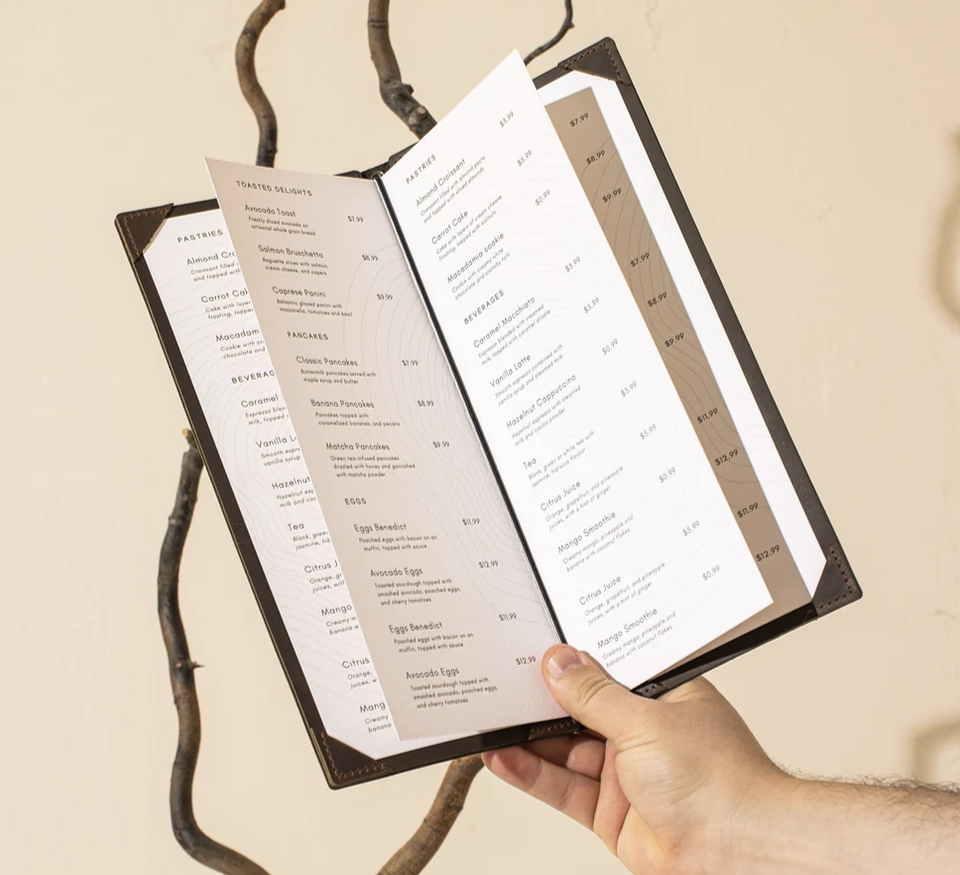 PASTRIES
Almond Cro
Croissant filled
and topped wit
Carrot Cak
Cake with layer
frosting, toppe
Macadam
Cookie with cr
chocolate and
BEVERAG
Caramel
Espresso blen
milk, topped
Vanilla L
Smooth espre
vanilla syrup
Hazelnut
Hazelnut esp
milk and coc
Tea
Black, green
jasmine, hib
Citrus J
Orange, gr
juices, wit
Mango
Creamy m
banana w
Citrus
Orange,
juices, w
Mang
Creamy
banana
TOASTED DELIGHTS
Avocado Toast $7.99
Freshly sliced avocado on
artisanal whole grain bread
Salmon Bruschetta $8.99
Baguette slices with salmon,
cream cheese, and capers
Caprese Panini $9.99
Balsamic glazed panini with
mozzarella, tomatoes and basil
PANCAKES
Classic Pancakes $7.99
Buttermilk pancakes served with
maple syrup and butter
Banana Pancakes $8.99
Pancakes topped with
caramelized bananas, and pecans
Matcha Pancakes $9.99
Green tea-infused pancakes
drizzled with honey and garnished
with matcha powder
EGGS
Eggs Benedict $11.99
Poached eggs with bacon on an
muffin, topped with sauce
Avocado Eggs $12.99
Toasted sourdough topped with
smashed avocado, poached eggs,
and cherry tomatoes
Eggs Benedict $11.99
Poached eggs with bacon on an
muffin, topped with sauce
Avocado Eggs $12.99
Toasted sourdough topped with
smashed avocado, poached eggs,
and cherry tomatoes
PASTRIES
Almond Croissant $5.99
Croissant filled with almond paste
and topped with sliced almonds
Carrot Cake $5.99
Cake with layers of cream cheese
frosting, topped with walnuts
Macadamia cookie $0.99
Cookie with creamy white
chocolate and crunchy nuts
BEVERAGES
Caramel Macchiato $5.99
Espresso blended with steamed
milk, topped with caramel drizzle
Vanilla Latte $5.99
Smooth espresso combined with
vanilla syrup and steamed milk
Hazelnut Cappuccino $0.99
Hazelnut espresso with steamed
milk and cocoa powder
Tea $5.99
Black, green or white tea with
jasmine, hibiscus flavour
Citrus Juice $5.99
Orange, grapefruit, and pineapple
juices, with a hint of ginger
Mango Smoothie $0.99
Creamy mango, pineapple and
banana with coconut flakes
Citrus Juice $5.99
Orange, grapefruit, and pineapple
juices, with a hint of ginger
Mango Smoothie $0.99
Creamy mango, pineapple and
banana with coconut flakes
$7.99
$8.99
$9.99
$7.99
$8.99
$9.99
$11.99
$12.99
$11.99
$12.99